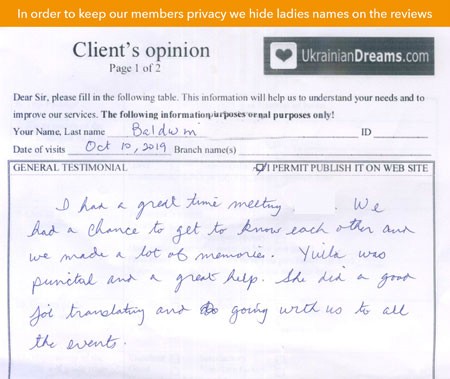 In order to keep our members privacy we hide ladies names on the reviews
Client's opinion
Page 1 of 2
UkrainianDreams.com
Dear Sir, please fill in the following table. This information will help us to understand your needs and to
improve our services. The following information purposes ornal purposes only!
Your Name, Last name Baldwin ID
Date of visits Oct 10, 2019 Branch name(s)
GENERAL TESTIMONIAL I PERMIT PUBLISH IT ON WEB SITE
I had a great time meeting . We
had a chance to get to know each other and
we made a lot of memories. Yulia was
punctual and a great help. She did a good
job translating and going with us to all
the events.